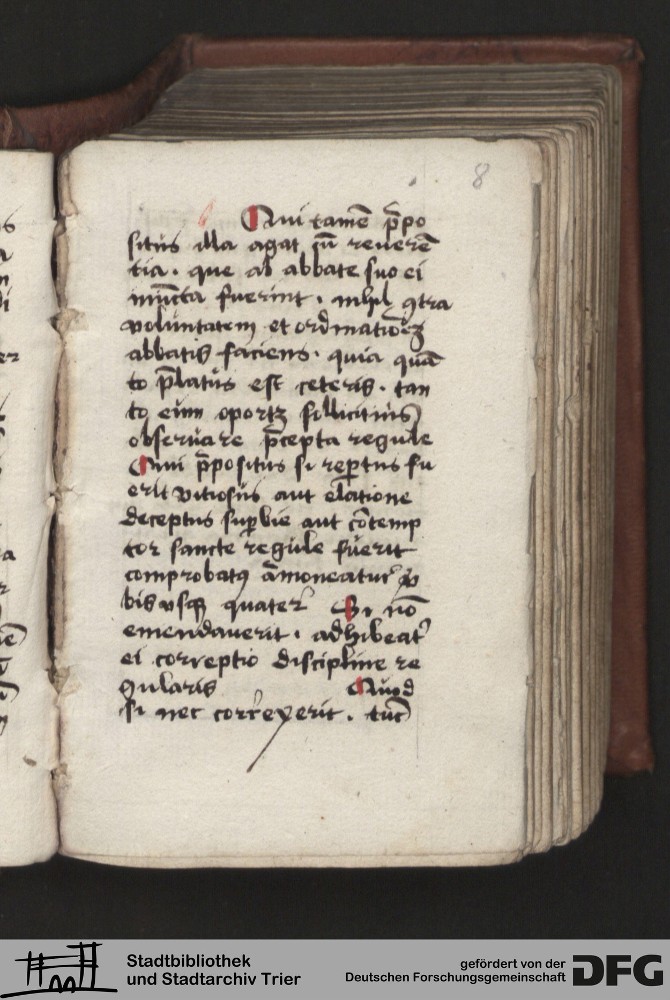 8
Qui tamē p̄po
situs illa agat cū reuerē
tia. que ab abbate suo ei
iniūcta fuerint. nihil ꝯtra
voluntatem et ordinationeꝫ
abbatis faciens. quia quā
to p̄latus est ceteris. tan
to eum oportꝫ sollicitius
obseruare p̄cepta regule
Qui p̄positus si rep̄tus fu
erit vitiosus aut elatione
deceptus sup̄bie aut cōtemp
tor sancte regule fuerit
comprobatꝰ āmoneatur
bis vsqꝫ quater Si nō
emendauerit. adhibeat᷑
ei correptio discipline re
gularis Quod
si nec correxerit. tūc
Stadtbibliothek
und Stadtarchiv Trier
gefördert von der
Deutschen Forschungsgemeinschaft
DFG